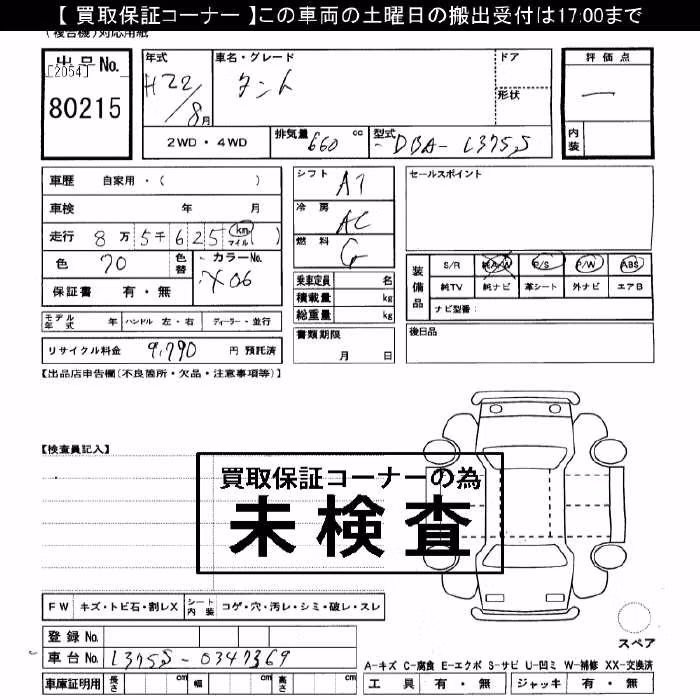 【 買取保証コーナー 】この車両の土曜日の搬出受付は17:00まで
(複合機)対応用紙
出品No.
[2054]
80215
年式
H22/8月
車名・グレード
タント
ドア
形状
2WD・4WD
排気量 660 cc
型式 DBA-L375S
評価点
一
内装
車歴 自家用・( )
車検 年 月
走行 8万5千625 km マイル ( )
色 クロ
色替
カラーNo. X06
保証書 有・無
モデル年式 年
ハンドル 左・右
ディーラー・並行
リサイクル料金 9,790 円 預託済
シフト AT
冷房 AC
燃料 G
乗車定員 名
積載量 kg
総重量 kg
書類期限
月 日
セールスポイント
装備品
S/R 純A・W P/S P/W ABS
純TV 純ナビ 革シート 外ナビ エアB
ナビ型番:
後日品
【出品店申告欄(不良箇所・欠品・注意事項等)】
【検査員記入】
買取保証コーナーの為
未検査
FW キズ・トビ石・割レX
シート内装 コゲ・穴・汚レ・シミ・破レ・スレ
登録No.
車台No. L375S-0347369
車庫証明用 長さ cm 幅 cm 高さ cm
スペア
A-キズ C-腐食 E-エクボ S-サビ U-凹ミ W-補修 XX-交換済
工具 有・無
ジャッキ 有・無